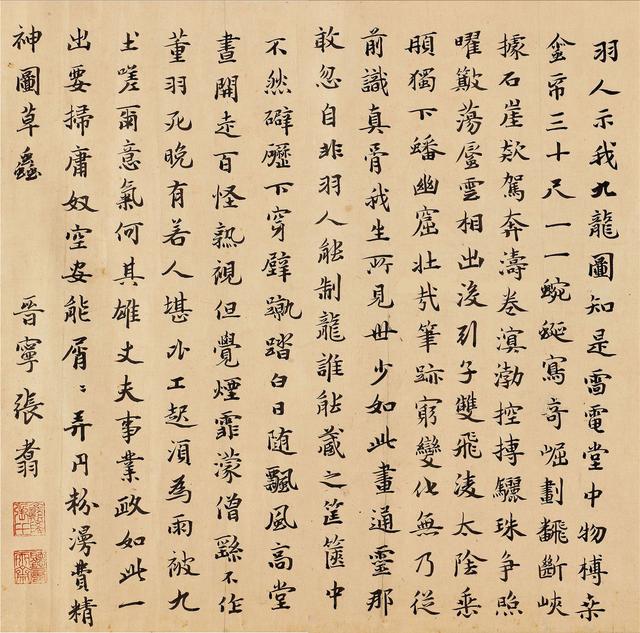 羽人示我九龍圖知是雷電堂中物榑桒
金帛三十尺一一蜿蜒寫奇崛劃飜斷峽
據石崖欻駕奔濤卷溟渤控摶驪珠争照
曜簸蕩蜃雲相出没引子雙飛淩太陰垂
頏獨下蟠幽窟壯哉筆跡窮變化無乃從
前識真骨我生所見世少如此畫通靈那
敢忽自非羽人能制龍誰能藏之筐篋中
不然礔礰下穿壁蹴踏白日随飄風高堂
晝開走百怪熟視但覺煙霏濛僧繇不作
董羽死晚有若人堪外工起湏為雨被九
土嗟爾意氣何其雄丈夫事業政如此一
出要掃庸奴空安能屑〻弄丹粉漫費精
神圖草蟲 晉寧張翥